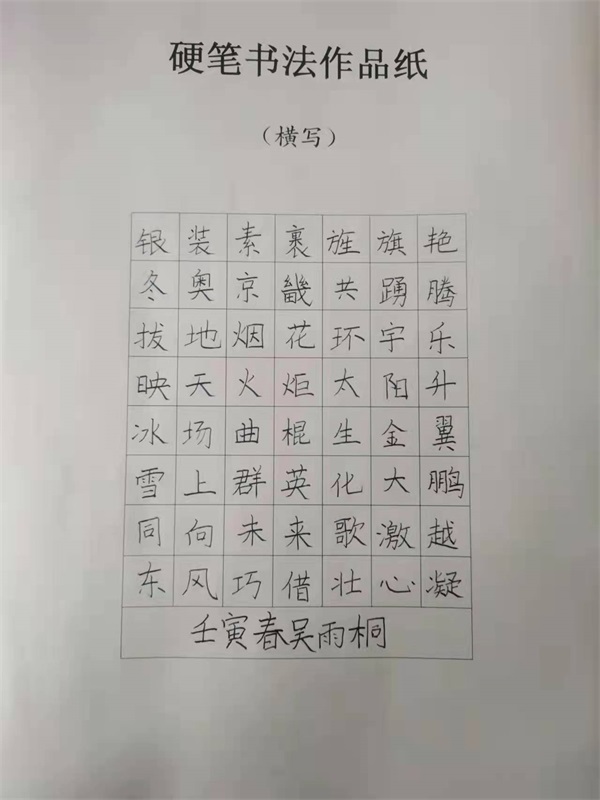 硬笔书法作品纸
（横写）
银装素裹旌旗艳
冬奥京畿共踊腾
拔地烟花环宇乐
映天火炬太阳升
冰场曲棍生金翼
雪上群英化大鹏
同向未来歌激越
东风巧借壮心凝
壬寅春吴雨桐